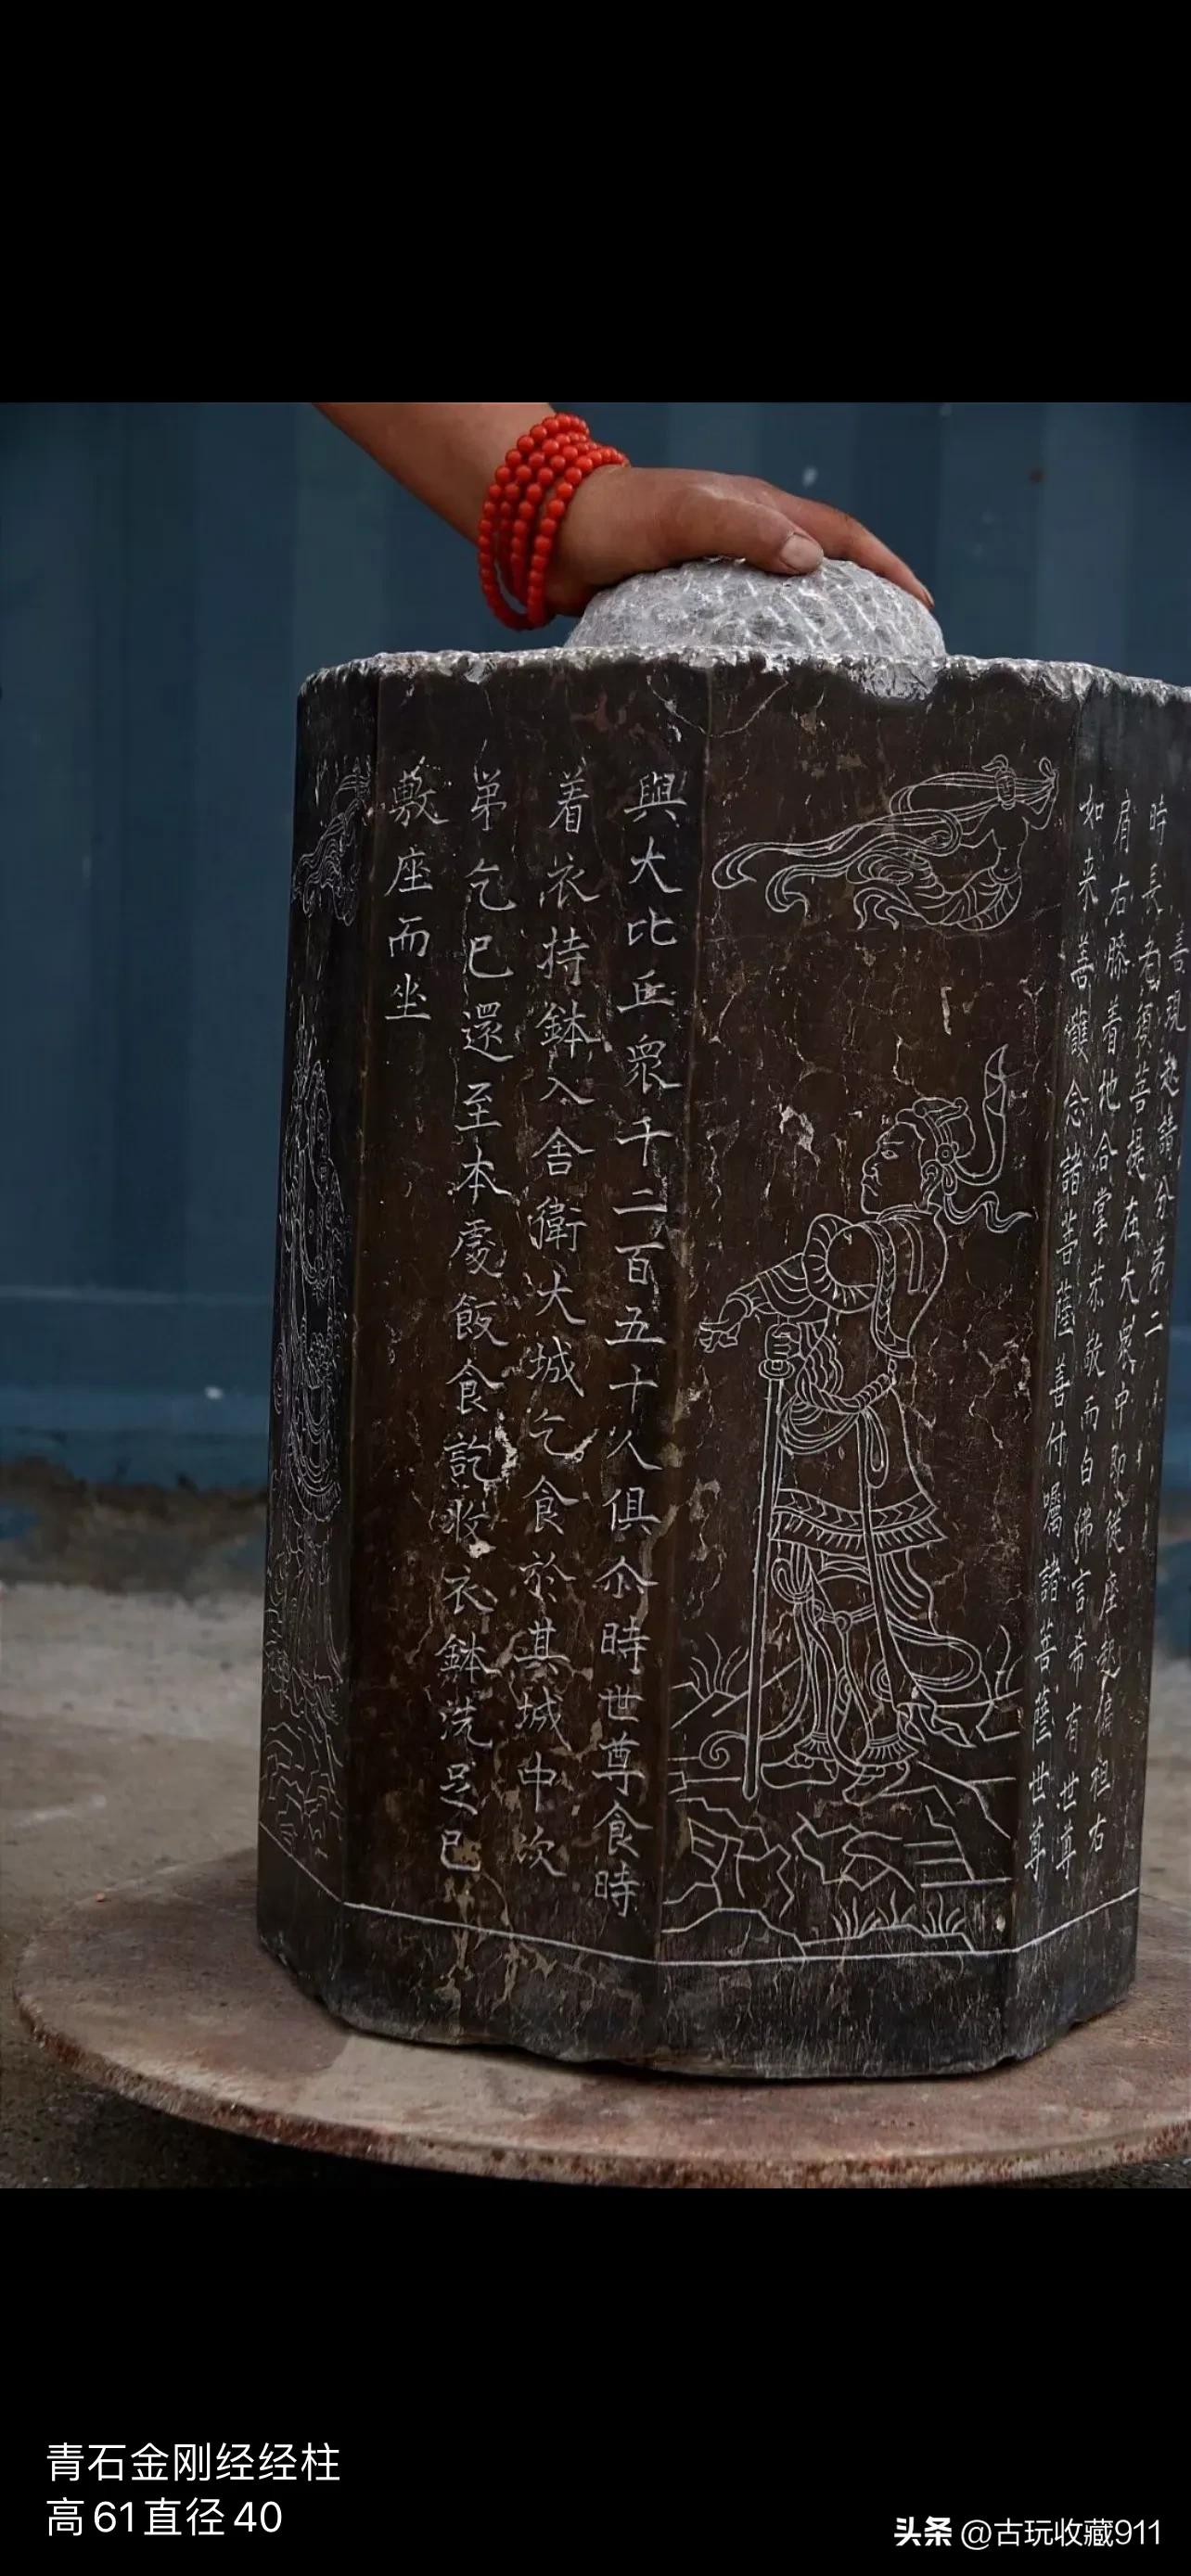 善現起請分第二
時長老須菩提在大衆中即從座起偏袒右
肩右膝着地合掌恭敬而白佛言希有世尊
如来善護念諸菩薩善付囑諸菩薩世尊
與大比丘衆千二百五十人俱尒時世尊食時
着衣持鉢入舍衛大城乞食於其城中次
苐乞已還至本處飯食訖收衣鉢洗足已
敷座而坐
青石金刚经经柱
高61直径40
头条 @古玩收藏911